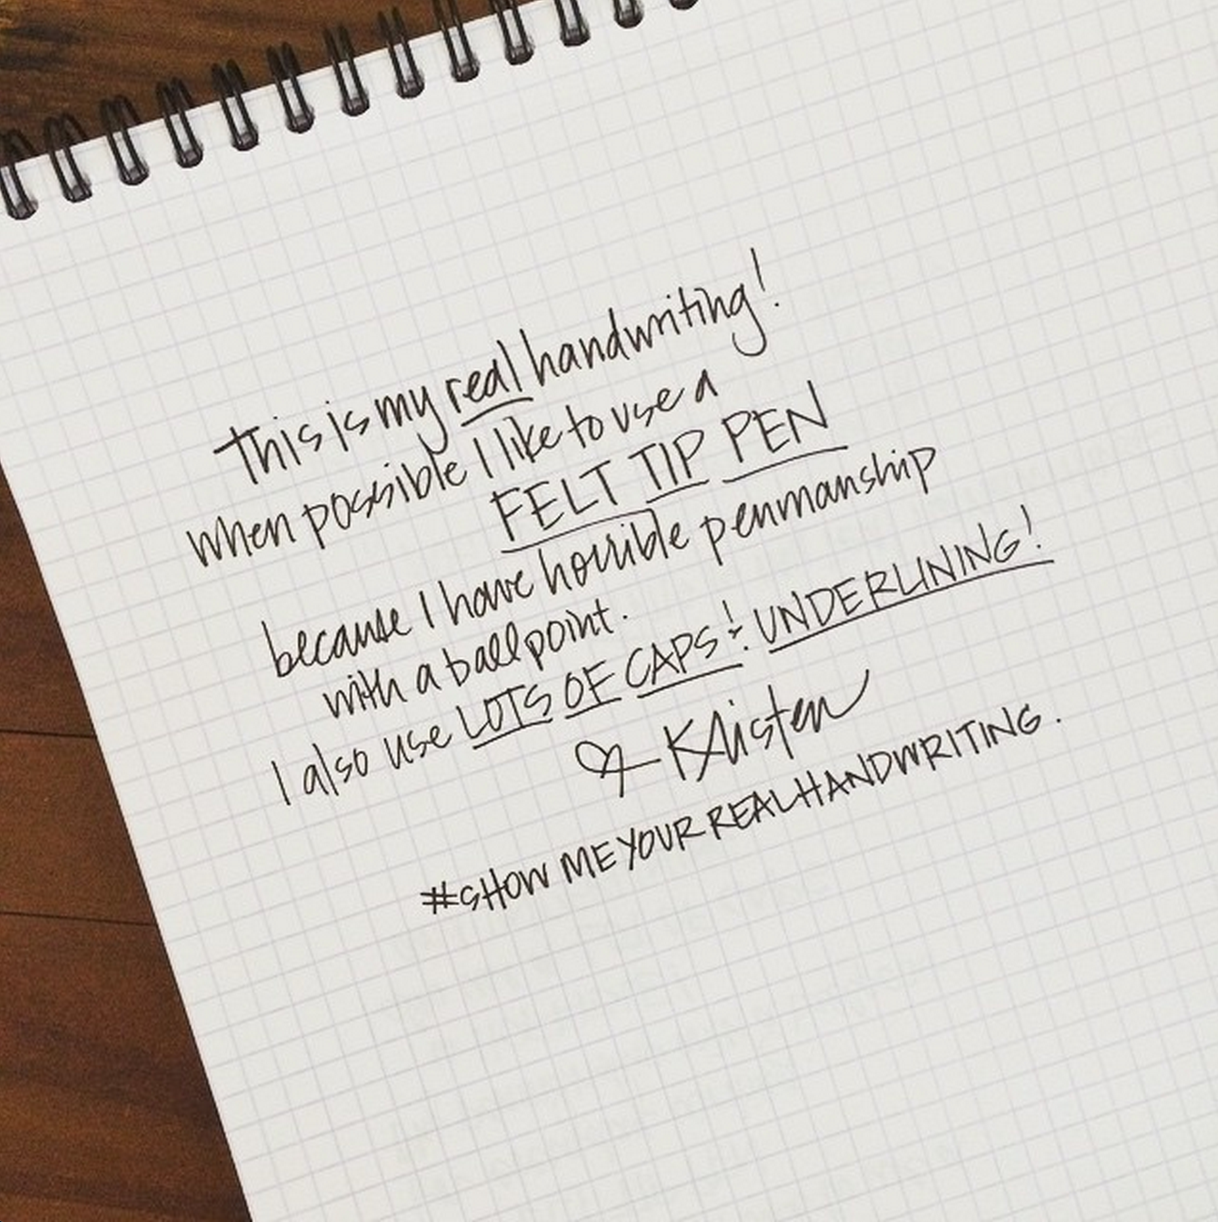 This is my real handwriting!
When possible I like to use a
FELT TIP PEN
because I have horrible penmanship
with a ballpoint.
I also use LOTS OF CAPS! & UNDERLINING!
♡ Kristen
#SHOW ME YOUR REAL HANDWRITING.